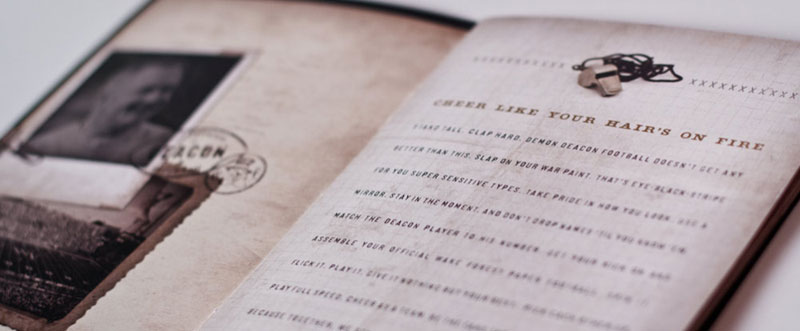 EACON
XXXXXXXXXXX
CHEER LIKE YOUR HAIR'S ON FIRE
STAND TALL. CLAP HARD. DEMON DEACON FOOTBALL DOESN'T GET ANY
BETTER THAN THIS. SLAP ON YOUR WAR PAINT. THAT'S EYE-BLACK-STRIPE
FOR YOU SUPER SENSITIVE TYPES. TAKE PRIDE IN HOW YOU LOOK. USE A
MIRROR. STAY IN THE MOMENT. AND DON'T DROP NAMES 'TIL YOU KNOW 'EM.
MATCH THE DEACON PLAYER TO HIS NUMBER. GET YOUR
ASSEMBLE YOUR OFFICIAL WAKE FOREST PAPER FOOTBALL.
FLICK IT. PLAY IT. GIVE IT NOTHING BUT YOUR BEST.
PLAY FULL SPEED. CHEER AS A TEAM.
BECAUSE TOGETHER, WE